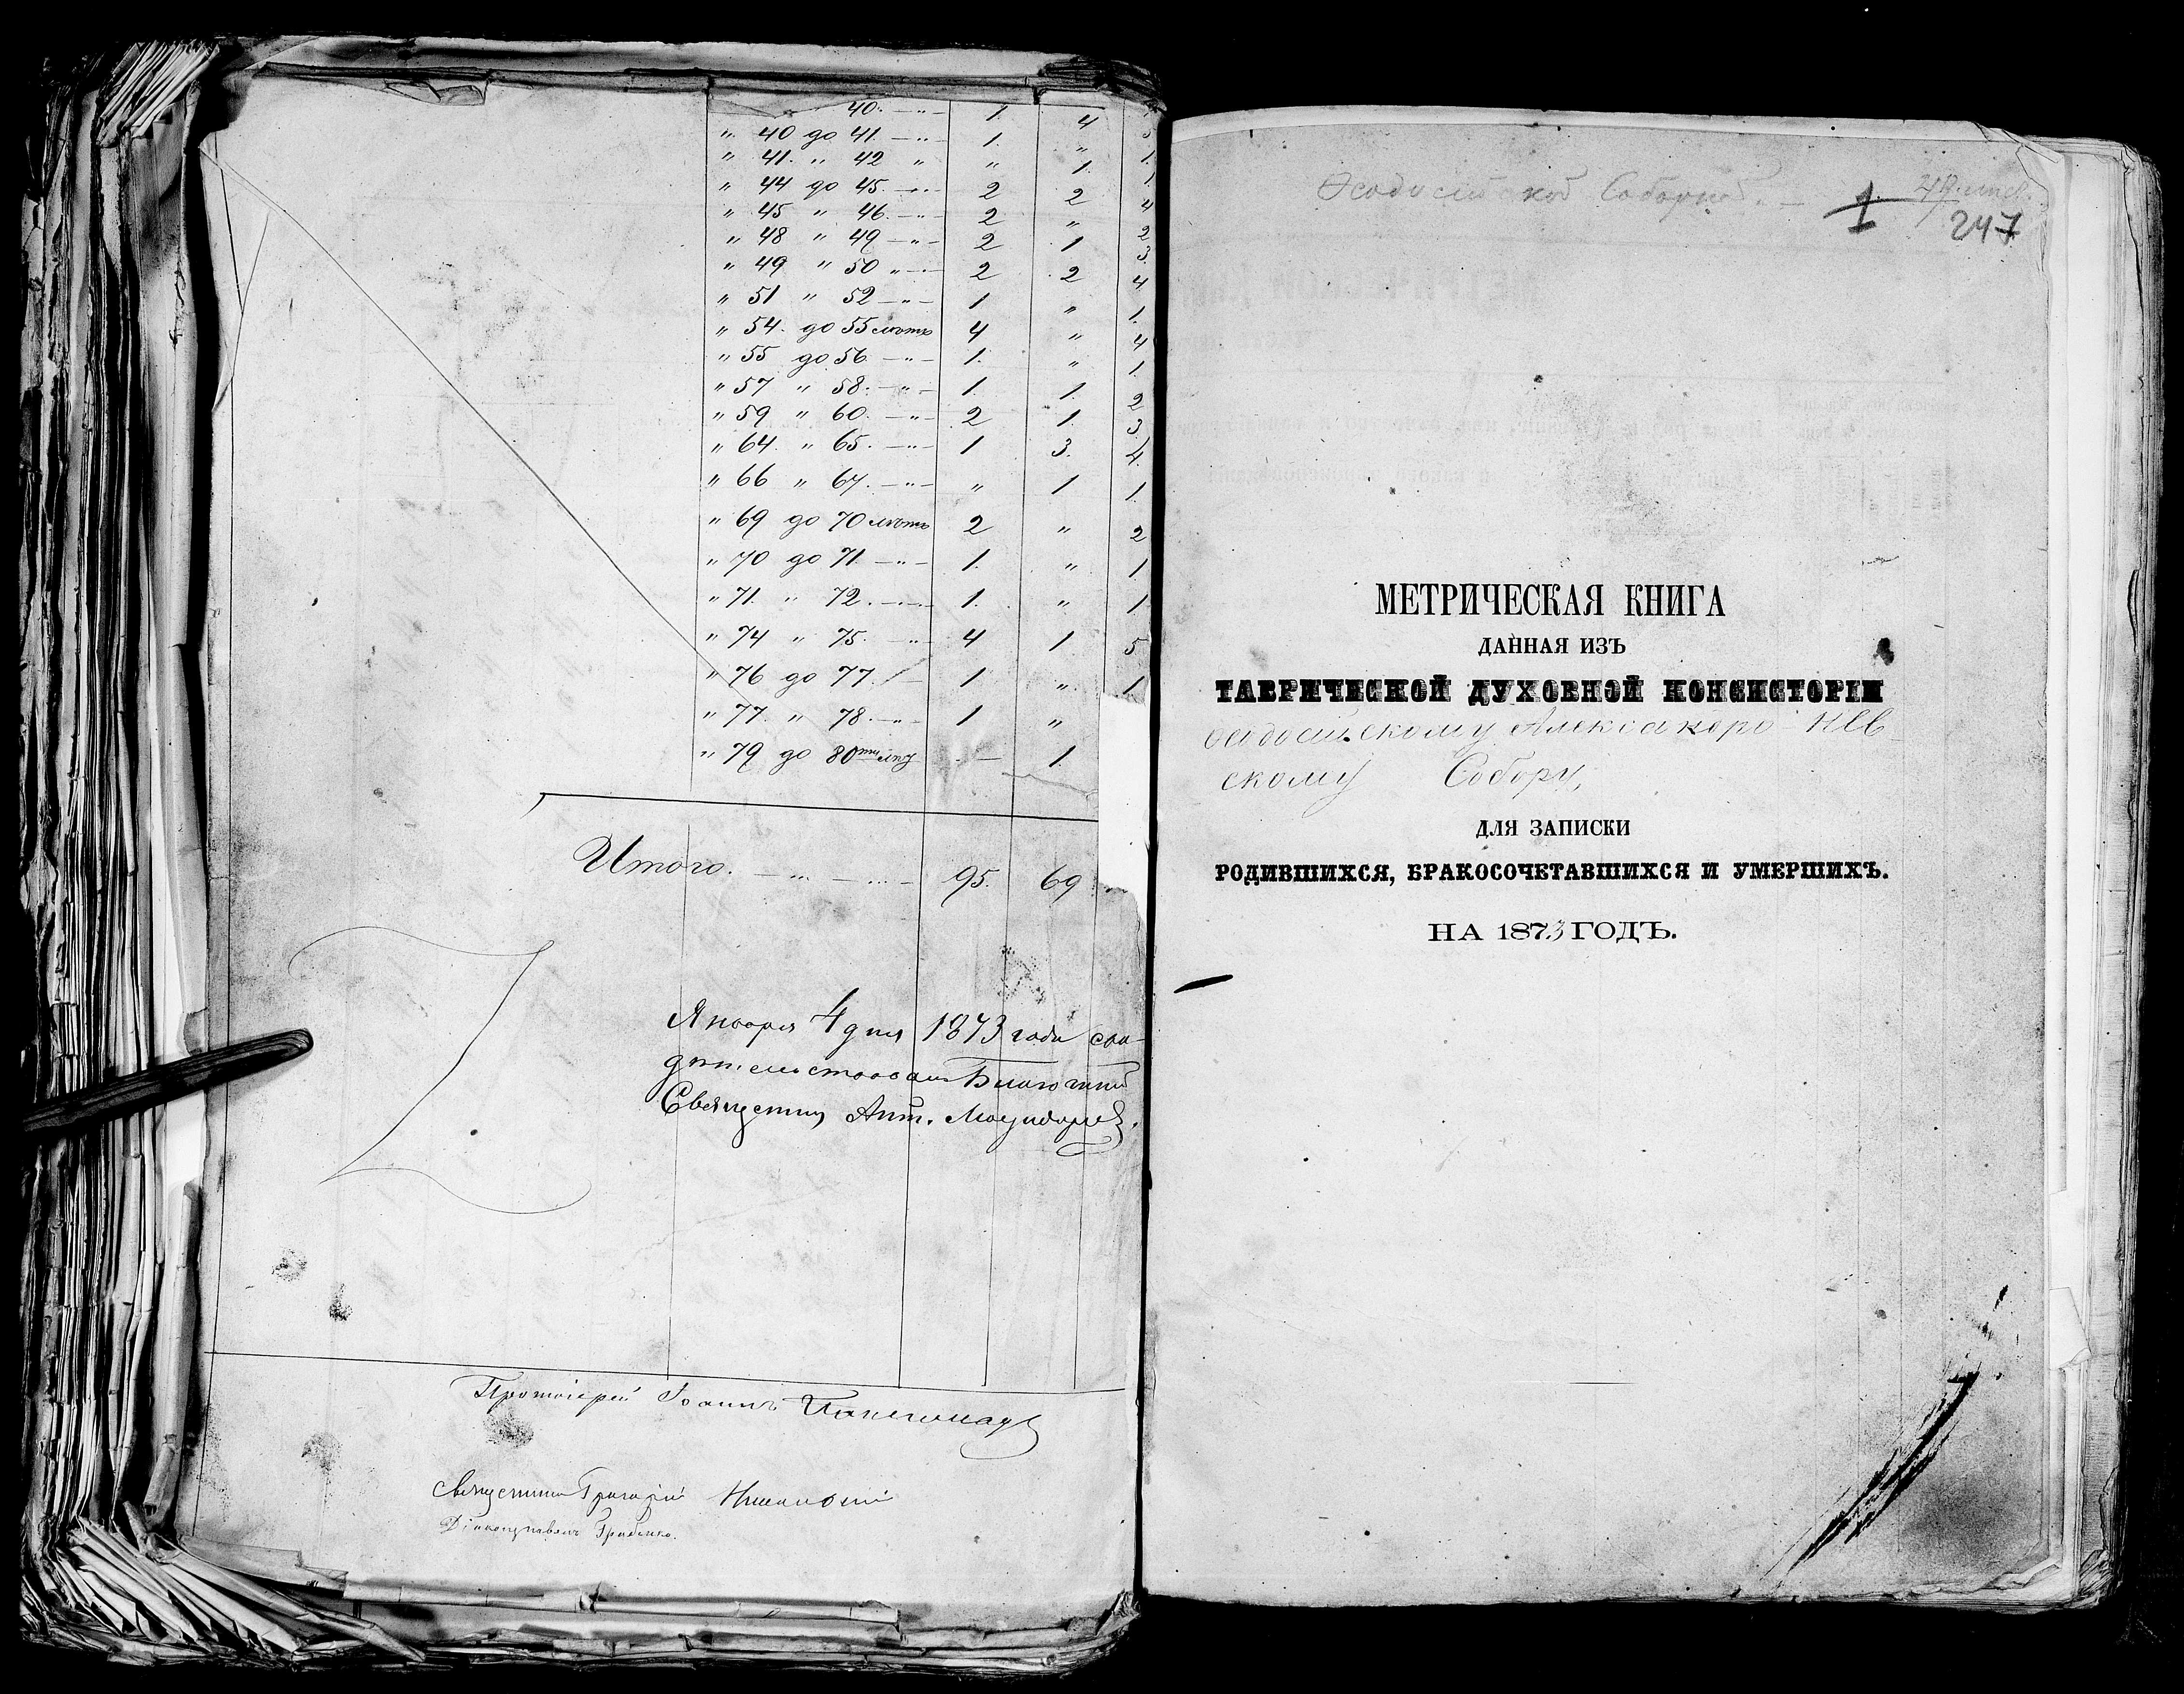 40. — " — 1. 4
" 40 до 41 — " — 1. " 1.
" 41. " 42 " " 1. 1.
" 44 до 45. — " — 2 2 4
" 45 " 46. — " — 2 " 2
" 48 " 49 — " — 2 1 3.
" 49 " 50 " — " — 2 2 4
" 51 " 52 — " — 1 " 1.
" 54. до 55 лѣтъ 4 " 4
" 55 до 56 — " — 1. " 1.
" 57 " 58. — " — 1. 1. 2
" 59 " 60. — " — 2 1. 3.
" 64. " 65. — " — 1 3. 4.
" 66 " 67. — " — " 1 1.
" 69 до 70 лѣтъ 2 " 2
" 70 до 71. — " — 1. " 1.
" 71. " 72. — " — 1. " 1
" 74 " 75. — " — 4 1 5
" 76 до 77. — 1 " 1
" 77. " 78. — " — 1 "
" 79 до 80 — 1.
Итого. — " — " — 95. 69
Января 4 дня 1873 года сви-
дѣтельствовалъ Благочинный
Священникъ Ант.
Протоіерей Іоаннъ
Священникъ Григорій
Діаконъ Павелъ
Ѳеодосійской Соборной. —
1
247
МЕТРИЧЕСКАЯ КНИГА
ДАННАЯ ИЗЪ
ТАВРИЧЕСКОЙ ДУХОВНОЙ КОНСИСТОРІИ
Ѳеодосійскому Александро-Нев-
скому Собору,
ДЛЯ ЗАПИСКИ
РОДИВШИХСЯ, БРАКОСОЧЕТАВШИХСЯ И УМЕРШИХЪ.
НА 1873 ГОДЪ.